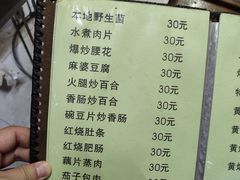 本地野生菌 30元
水煮肉片 30元
爆炒腰花 30元
麻婆豆腐 30元
火腿炒百合 30元
香肠炒百合 30元
豌豆片炒香肠 30元
红烧肚条 30元
红烧肥肠 30元
藕片蒸肉 30元
茄子包肉